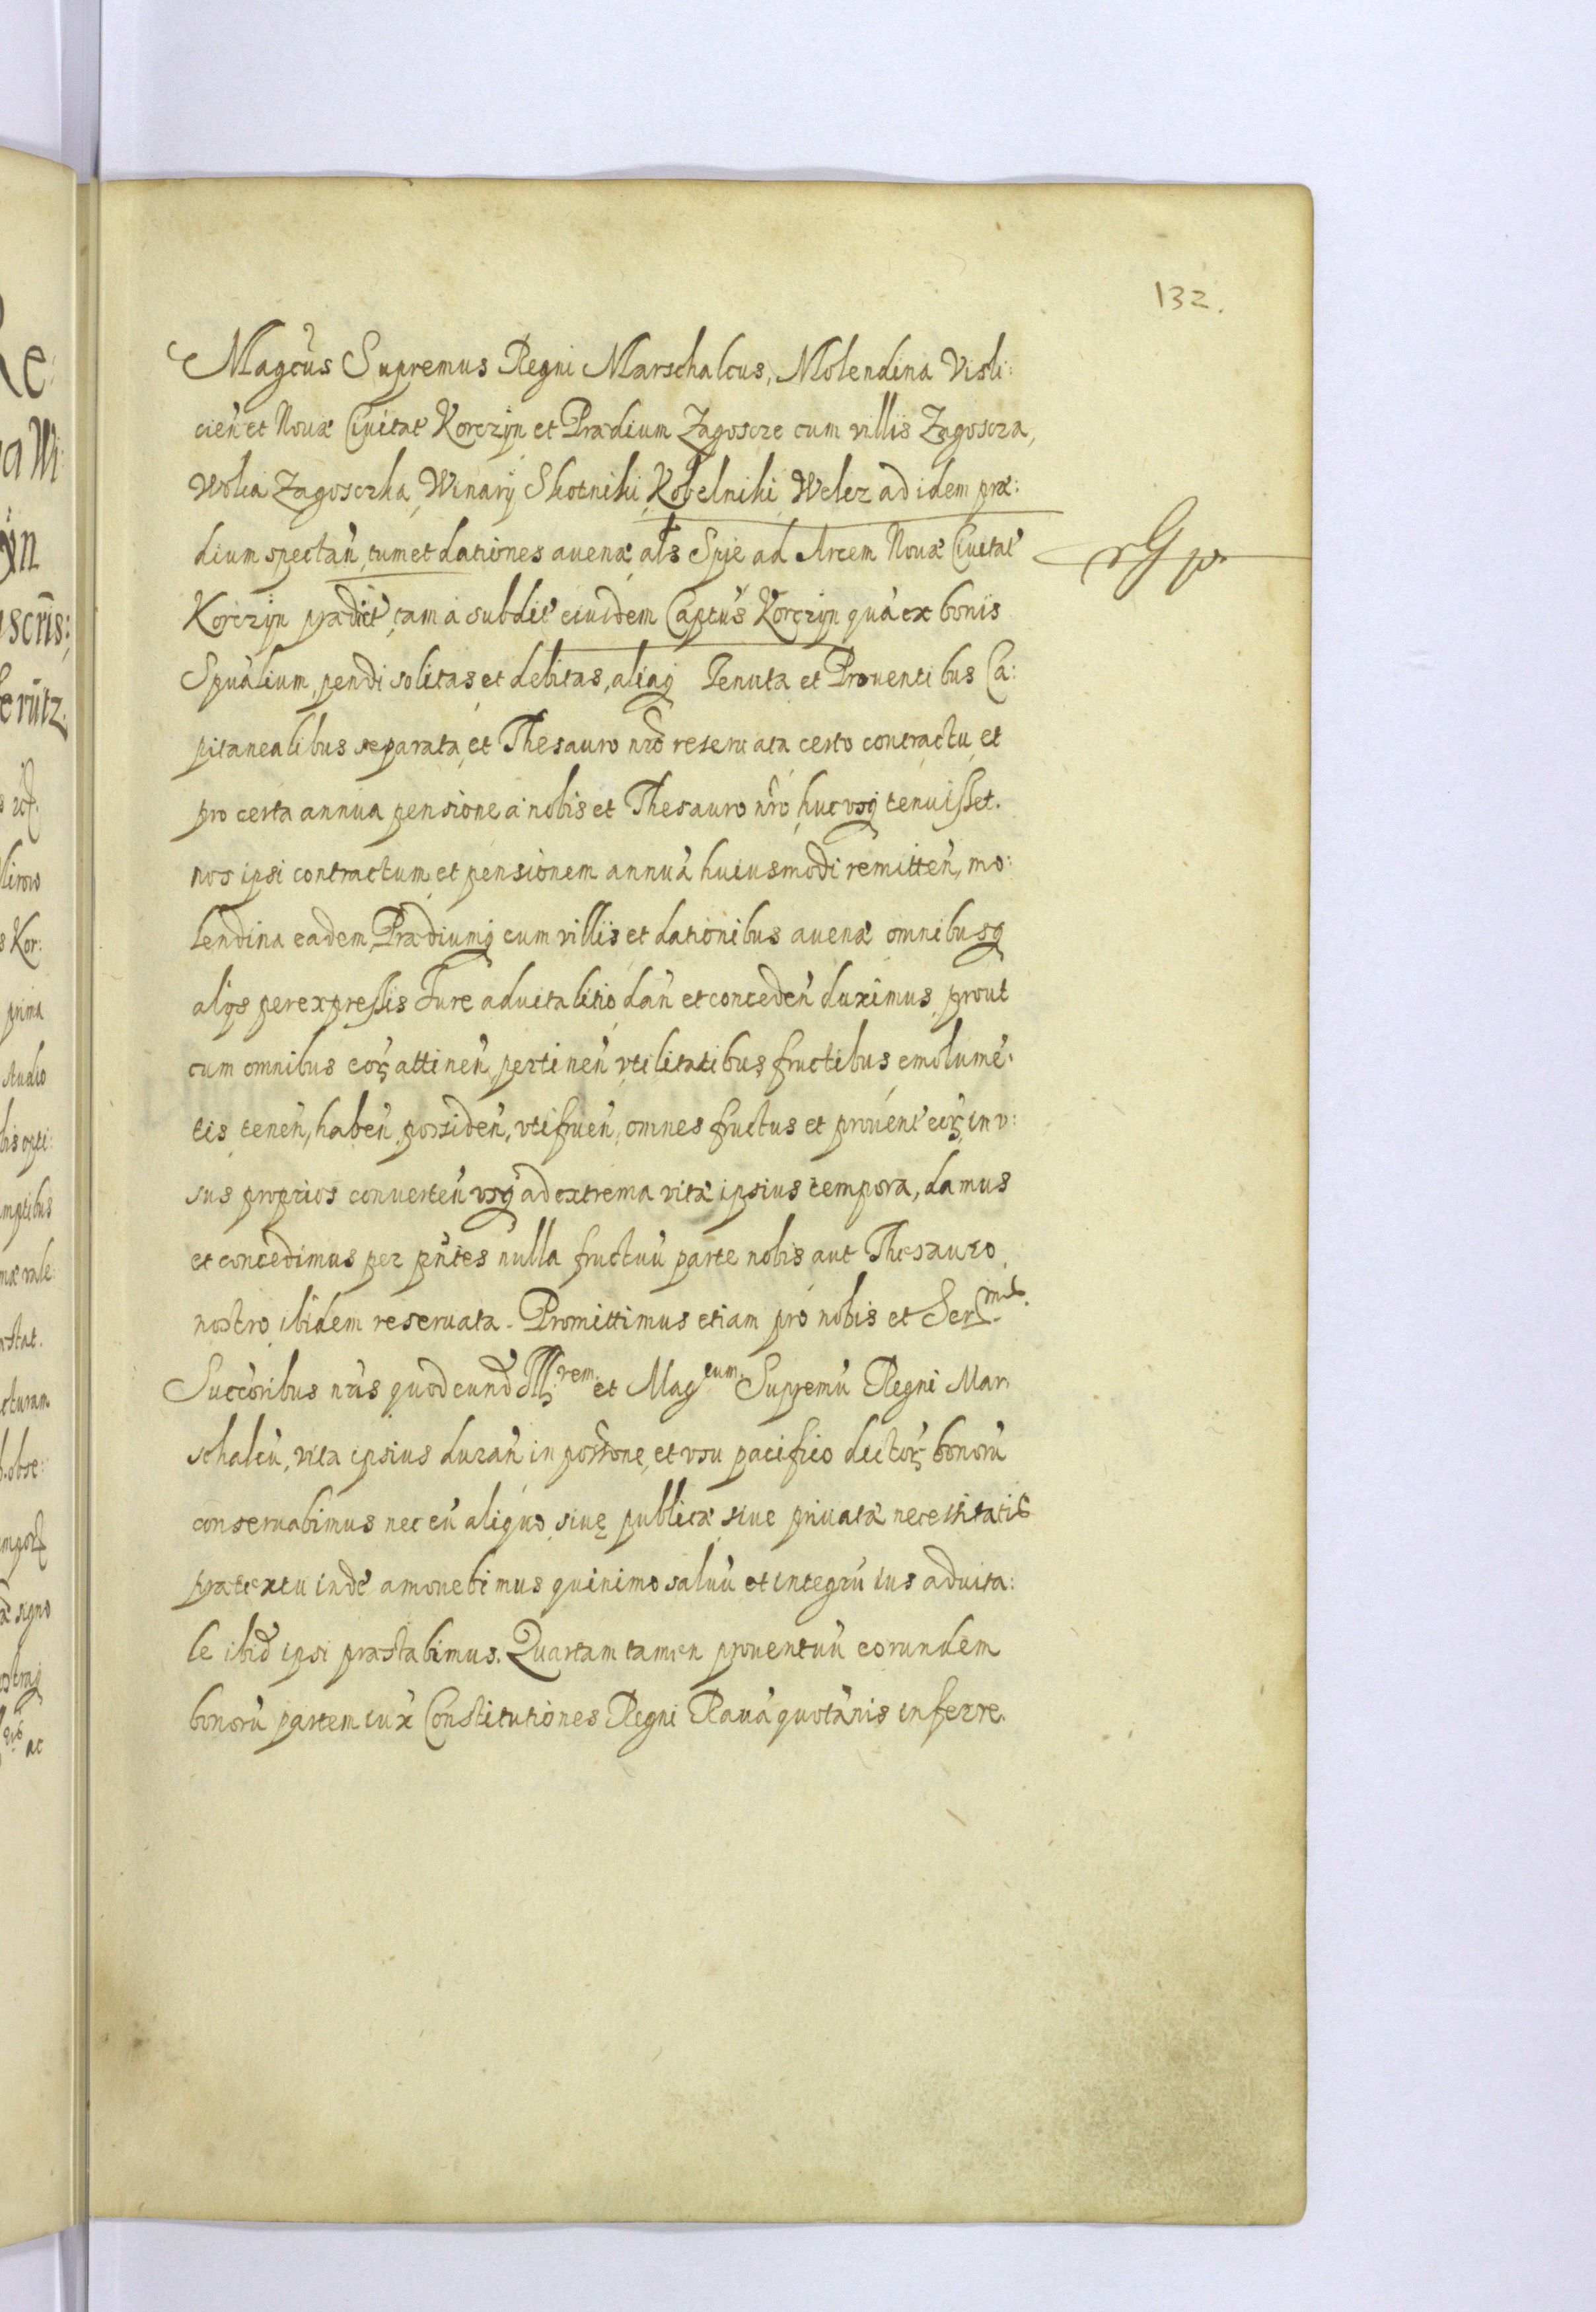 132.
Magcus Supremus Regni Marschalcus, Molendina Visli:
cien̄ et Nouæ Ciuitat Korczyn et Prædium Zagoscze cum villis Zagoscza,
Wolia Zagosczka, Winary Skotniki Kobelniki Welez ad idem præ:
dium spectan̄, tum et dationes auenæ als Spie ad Arcem Nouæ Ciuitat
Korczyn prædict, tam a subdit eiusdem Captus Korczyn quā ex bonis
Spūalium, pendi solitas et debitas, aliaq Tenuta et Prouentibus Ca:
pitanealibus separata, et Thesauro nrō reseruata certo contractu, et
pro certa annua pensione a nobis et Thesauro nrō hucusq tenuisset.
nos ipsi contractum et pensionem annuā huiusmodi remitten̄, mo:
lendina eadem, Prædiumq cum villis et dationibus auenæ omnibusq
alijs perexpressis Iure aduitalitio dan̄ et conceden̄ duximus, prout
cum omnibus eorꝫ attinen̄, pertinen̄ vtilitatibus fructibus emolumē:
tis tenen̄, haben̄ possiden̄, vtifruen̄, omnes fructus et prouent eorꝫ in v:
sus proprios conuerten̄ vsq ad extrema vitæ ipsius tempora, damus
et concedimus per pn̄tes nulla fructuū parte nobis aut Thesauro
nostro ibidem reseruata. Promittimus etiam pro nobis et Ser mis.
Succoribus nr̄is quod eund Illrem. et Mag cum. Supremū Regni Mar
schalcū, vita ipsius duran̄ in possone, et vsu pacifico dictorꝫ bonorū
conseruabimus nec eū aliquo siue publicæ siue priuatæ necessitatis
prætextu inde amouebimus quinimo saluū et integrū ius aduita:
le ibid ipsi præstabimus. Quartam tamen prouentuū eorundem
bonorū partem iux Constitutiones Regni Rauā quotānis inferre.